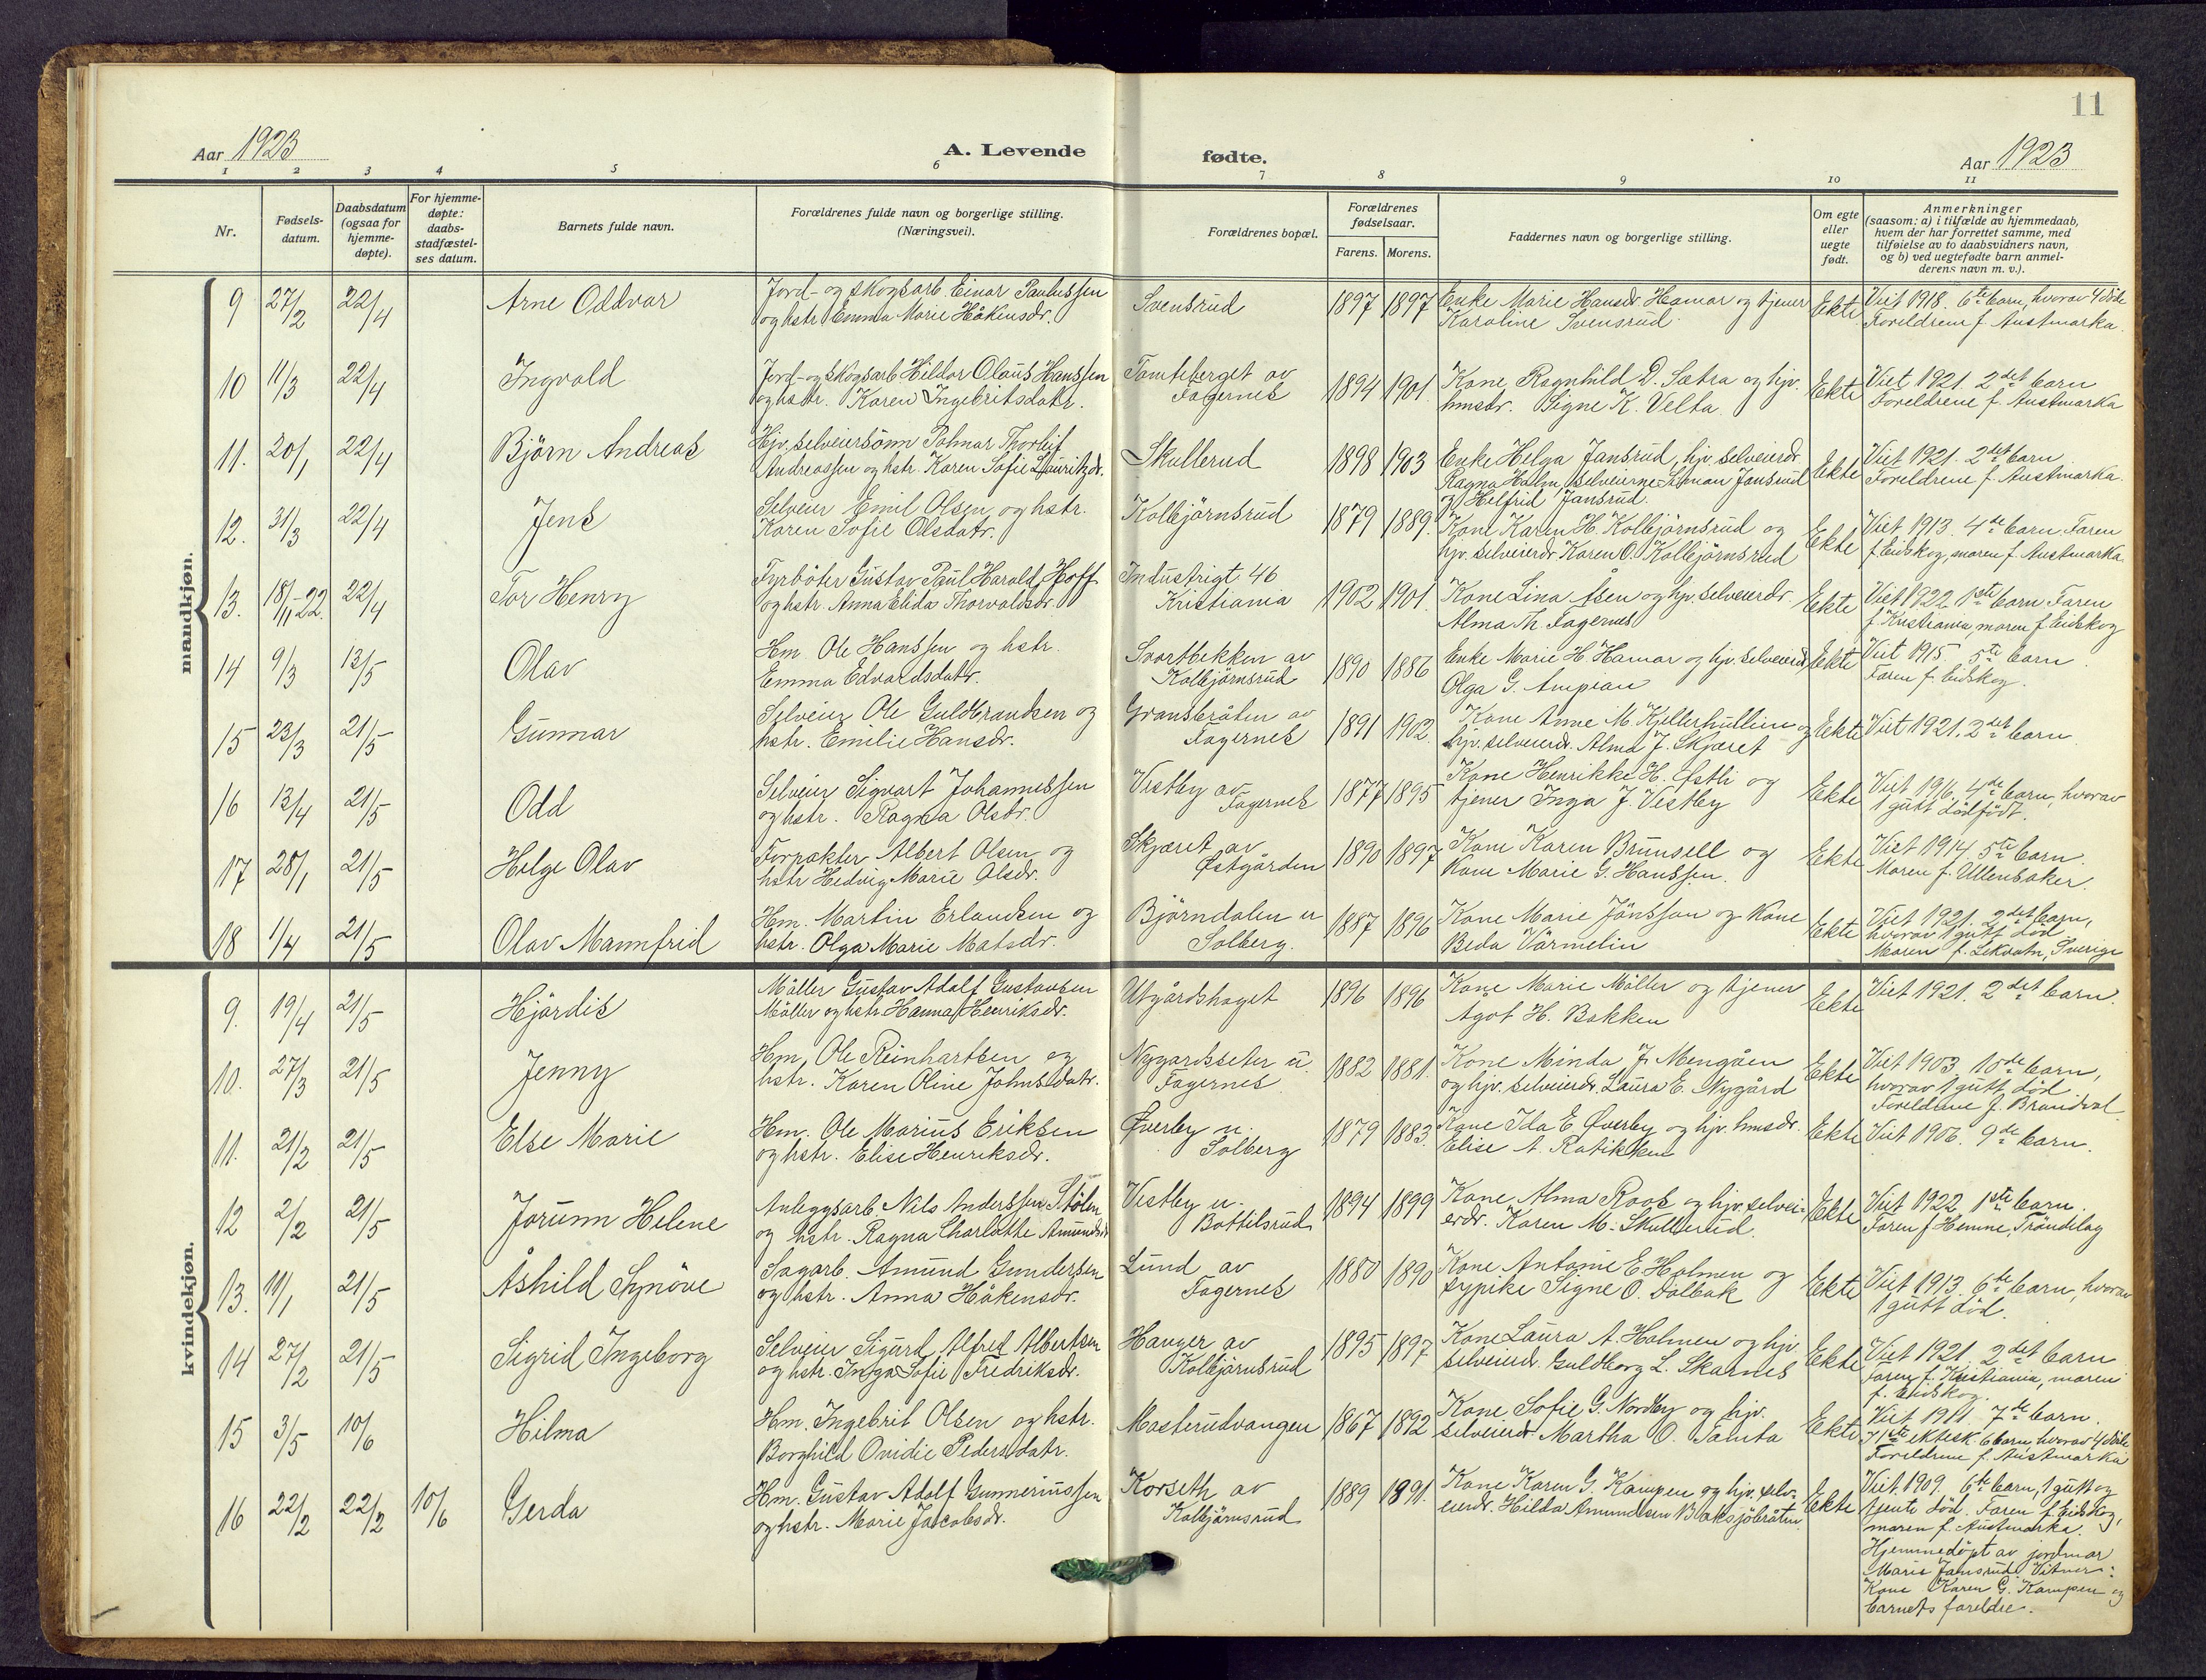 11
Aar 1923 A. Levende fødte. Aar 1923
1 2 3 4 5 6 7 8 9 10 11
Nr.
Fødsels-
datum.
Daabsdatum
(ogsaa for
hjemme-
døpte).
For hjemme-
døpte:
daabs-
stadfæstel-
ses datum.
Barnets fulde navn.
Forældrenes fulde navn og borgerlige stilling.
(Næringsvei).
Forældrenes bopæl.
Forældrenes
fødselsaar.
Farens. Morens.
Faddernes navn og borgerlige stilling.
Om egte
eller
uegte
født.
Anmerkninger
(saasom: a) i tilfælde av hjemmedaab,
hvem der har forrettet samme, med
tilføielse av to daabsvidners navn,
og b) ved uegtefødte barn anmel-
derens navn m. v.).
mandkjøn.
9 27/2 22/4 Arne Oddvar
Jord- og skogsarb. Einar Paulussen
og hstr. Emma Marie Håkensdr.
Svensrud
1897 1897
Enke Marie Hansdr. Hamar og tjener
Karoline Svensrud.
Ekte
Viet 1918. 6te barn, hvorav 4 döde
Foreldrene f. Austmarka.
10 11/3 22/4 Ingvald
Jord- og skogsarb Hildor Olaus Hanssen
og hstr. Karen Ingebritsdatr.
Tomteberget av
Fagernes
1894 1901
Kone Ragnhild D. Sætra og hjv.
hmsdr. Signe K. Velta.
Ekte
Viet 1921. 2det barn
Foreldrene f. Austmarka
11. 20/1 22/4 Björn Andreas
Hjv. selveiersönn Palmar Thorleif
Andreassen og hstr. Karen Sofie Lauritzdr.
Skullerud
1898 1903
Enke Helga Jansrud, hjv. selveierdr.
Ragna Holm, selveierne Simon Jansrud
og Helfrid Jansrud.
Ekte
Viet 1921. 2det barn
Foreldrene f. Austmarka.
12. 31/3 22/4 Jens
Selveier Emil Olsen og hstr.
Karen Sofie Olsdatr.
Kolbjörnsrud
1879 1889.
Kone Karen H. Kolbjörnsrud og
hjv. selveierdr. Karen O. Kolbjörnsrud
Ekte
Viet 1913. 4de barn. Faren
f. Eidskog, moren f. Austmarka.
13. 18/11-22. 22/4 Tor Henry
Fyrböter Gustav Paul Harald Hoff
og hstr. Anna Elida Thorvaldsdr.
Industrigt. 46
Kristiania
1902 1901
Kone Lina Åsen og hjv. selveierdr.
Alma Th. Fagernes
Ekte
Viet 1922 1ste barn Faren
f. Kristiania, moren f. Eidskog
14 9/3 13/5 Olav
Hm. Ole Hanssen og hstr.
Emma Edvardsdatr.
Svartbekken av
Kolbjörnsrud
1890 1886
Enke Marie H. Hamar og hjv. selveierdr.
Olga G. Ampian
Ekte
Viet 1915. 5te barn.
Faren f. Eidskog.
15 23/3 21/5 Gunnar
Selveier Ole Guldbrandsen og
hstr. Emilie Hansdr.
Gransbråten av
Fagernes
1891 1902.
Kone Anne M. Kjellerhullien og
hjv. selveierdr. Alma J. Skjæret
Ekte
Viet 1921. 2det barn
16 13/4 21/5 Odd
Selveier Sigvart Johannessen
og hstr. Ragna Olsdr.
Vestby av
Fagernes
1877 1895
Kone Henrikke H. Østli og
tjener Inga J. Vestby
Ekte
Viet 1916. 4de barn, hvorav
1 gutt dödfödt.
17 28/1 21/5 Helge Olav
Forpakter Albert Olsen og
hstr Hedvig Marie Olsdr.
Skjæret av
Østgården
1890 1897
Kone Karen Brunsell og
Kone Marie G. Hanssen.
Ekte
Viet 1914 5te barn.
Moren f. Ullensaker.
18 1/4 21/5 Olav Mannfrid
Hm. Martin Erlandsen og
hstr. Olga Marie Matsdr.
Björndalen u
Solberg.
1887 1896
Kone Marie Jönsson og Kone
Beda Värmelin
Ekte
Viet 1921. 2det barn,
hvorav 1 gutt död.
Moren f. Lekvatn, Sverige
kvindekjøn.
9. 19/4 21/5 Hjördis
Möller Gustav Adolf Gustavsen
Möller og hstr. Hanna Henriksdr.
Utgårdshaget
1896 1896
Kone Marie Möller og tjener
Ågot H. Bakken
Ekte
Viet 1921. 2det barn.
10. 27/3 21/5 Jenny
Hm. Ole Reinhartsen og
hstr. Karen Oline Johnsdatr.
Nygardsseter u.
Fagernes
1882 1881.
Kone Minda J. Mengåen
og hjv. selveierdr. Laura E. Nygård
Ekte
Viet 1903 10de barn,
hvorav 1 gutt död
Foreldrene f. Brandval
11. 21/2 21/5 Else Marie
Hm. Ole Marius Eriksen
og hstr. Elise Henriksdr.
Øverby u.
Solberg
1879 1883.
Kone Ida E. Øverby og hjv. hmsdr.
Elise A. Ratikken
Ekte
Viet 1906. 9de barn.
12 2/2 21/5 Jorunn Helene
Anleggsarb. Nils Anderssen Stölen
og hstr. Ragna Charlotthe Amundsdr
Vestby u.
Bottilsrud
1894 1899
Kone Alma Roos og hjv. selvei-
erdr. Karen M. Skullerud.
Ekte
Viet 1922 1ste barn.
Faren f. Hemne, Tröndelag
13. 11/1 21/5 Åshild Synöve
Sagarb. Amund Gundersen
og hstr. Anna Håkensdr.
Lund av
Fagernes
1880 1890
Kone Antonie E. Holmen og
sypike Signe O. Dalbak
Ekte
Viet 1913. 6te barn, hvorav
1 gutt död.
14 27/2 21/5 Sigrid Ingeborg
Selveier Sigurd Alfred Albertsen
og hstr. Inga Sofie Fredriksdr.
Hanger av
Kolbjörnsrud
1895 1897
Kone Laura A. Holmen og hjv.
selveierd. Guldborg L. Skarnes
Ekte
Viet 1921 2det barn
faren f. Kristiania, moren
f. Eidskog.
15 3/5 10/6 Hilma
Hm. Ingebrit Olsen og hstr.
Borghild Ovidie Pedersdatr.
Masterudvangen
1867 1892
Kone Sofie G. Nordby og hjv.
selveierdr. Martha O. Tamta
Ekte
Viet 1911. 7de barn.
I 1ste ektesk. 6 barn, hvorav 4 döde
Foreldrene f. Austmarka
16 22/2 22/2 10/6 Gerda
Hm. Gustav Adolf Gunneriussen
og hstr. Marie Jacobsdr.
Korseth av
Kolbjörnsrud
1889 1891.
Kone Karen G. Kampen og hjv. selv-
eierdr. Hilda Amundsen Baksjöbråten.
Ekte
Viet 1909. 6te barn, 1 gutt og
1 jente död. Faren f. Eidskog,
moren f. Austmarka.
Hjemmedöpt av jordmor
Marie Jansrud Vitner:
Kone Karen G. Kampen og
barnets foreldre.